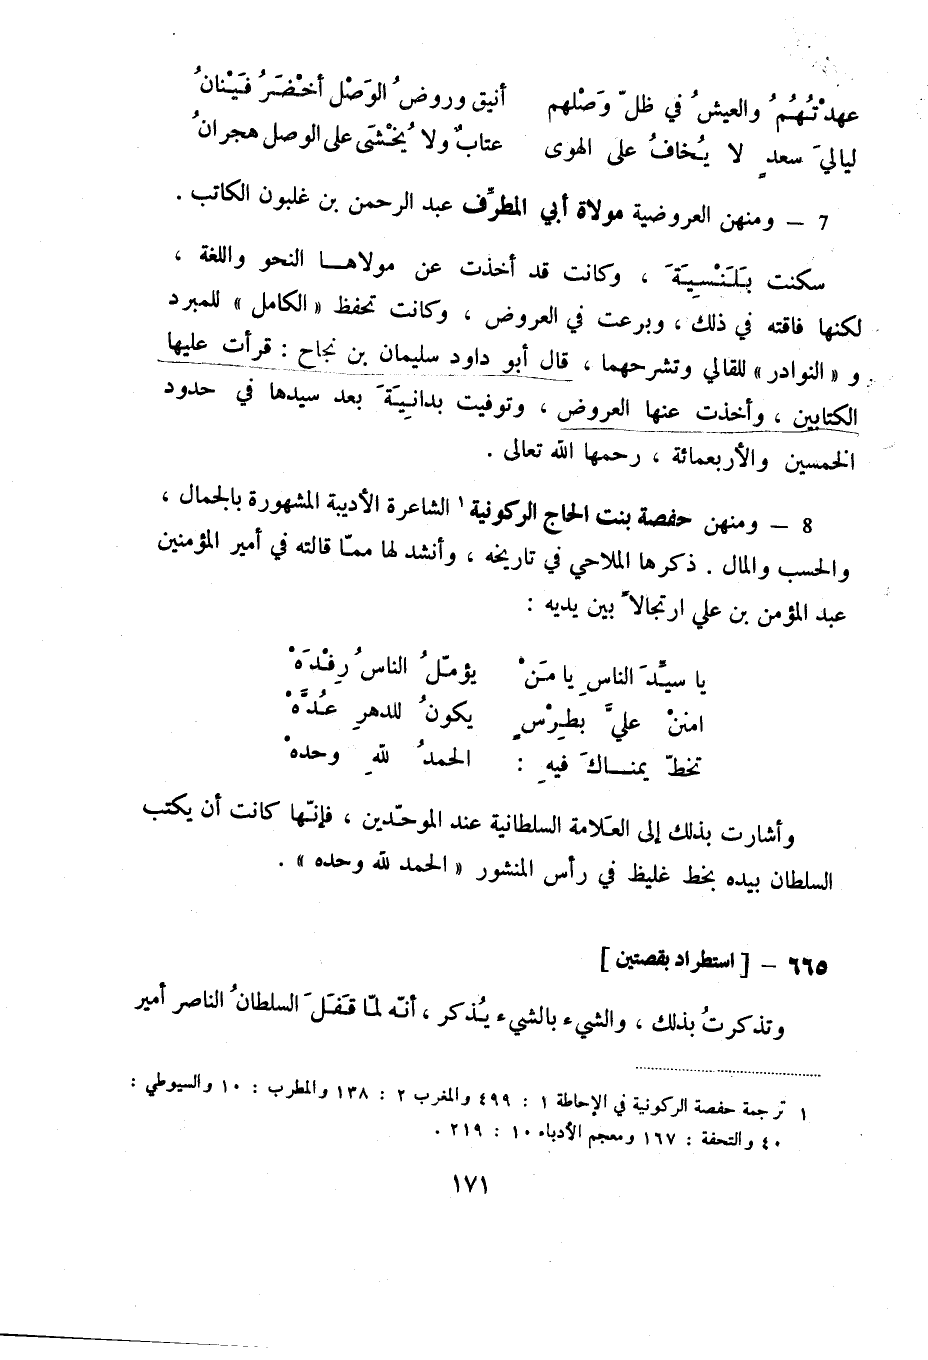 عهدْتُهُمُ والعيشُ في ظلّ وَصْلهم أنيق وروضُ الوَصْل أخْضَرُ فَيْنانُ
لياليَ سعدٍ لا يُخافُ على الهوى عتابٌ ولا يُخْشَى على الوصل هجرانُ
7 – ومنهن العروضية مولاة أبي المطرِّف عبد الرحمن بن غلبون الكاتب .
سكنت بَلَنْسِيَةَ ، وكانت قد أخذت عن مولاهـا النحو واللغة ،
لكنها فاقته في ذلك ، وبرعت في العروض ، وكانت تحفظ « الكامل » للمبرد
و « النوادر » للقالي وتشرحهما ، قال أبو داود سليمان بن نجاح : قرأت عليها
الكتابين ، وأخذت عنها العروض ، وتوفيت بدانِيَةَ بعد سيدها في حدود
الخمسين والأربعمائة ، رحمها الله تعالى .
8 – ومنهن حفصة بنت الحاج الركونية ١ الشاعرة الأديبة المشهورة بالجمال ،
والحسب والمال . ذكرها الملاحي في تاريخه ، وأنشد لها ممّا قالته في أمير المؤمنين
عبد المؤمن بن علي ارتجالاً بين يديه :
يا سيِّدَ الناسِ يا مَنْ يؤمّلُ الناسُ رِفْدَهْ
امننْ عليَّ بطِرْسٍ يكونُ للدهرِ عُدَّهْ
تخطّ يمنـاكَ فيهِ : الحمدُ للهِ وحدهْ
وأشارت بذلك إلى العَلامة السلطانية عند الموحّدين ، فإنّها كانت أن يكتب
السلطان بيده بخط غليظ في رأس المنشور « الحمد لله وحده » .
٦٦٥ – [ استطراد بقصتين ]
وتذكرتُ بذلك ، والشيء بالشيء يُذكر ، أنّه لمّا قَفَلَ السلطانُ الناصر أمير
١ ترجمة حفصة الركونية في الإحاطة ١ : ٤٩٩ والمغرب ٢ : ١٣٨ والمطرب : ١٠ والسيوطي :
٤٠ والتحفة : ١٦٧ ومعجم الأدباء ١٠ : ٢١٩ .
١٧١